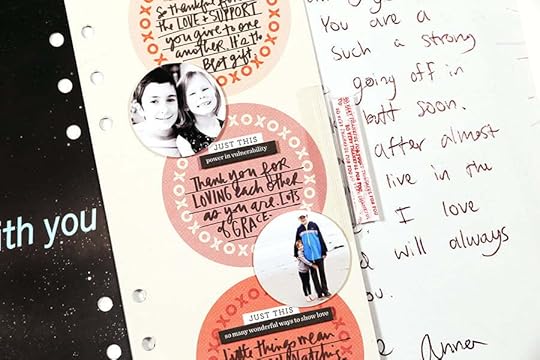 ith you
so thankful for
the LOVE & SUPPORT
you give to one
another. It's the
Best gift.
JUST THIS
power in vulnerability
Thank you for
LOVING each other
as you are. LOTS
of GRACE.
JUST THIS
so many wonderful ways to show love
little things mean
You are a
such a strong
going off in
butt soon.
after almost
live in the
I love
will always
ou.